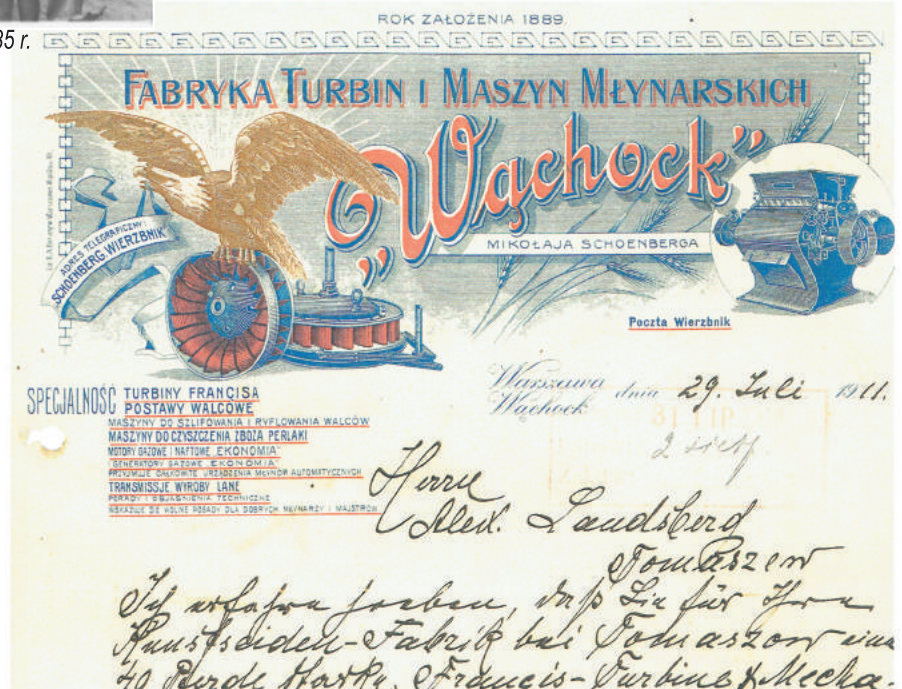 35 r.
ROK ZAŁOŻENIA 1889.
FABRYKA TURBIN I MASZYN MŁYNARSKICH
„Wąchock”
MIKOŁAJA SCHOENBERGA
ADRES TELEGRAFICZNY:
SCHOENBERG, WIERZBNIK
Poczta Wierzbnik
Warszawa
Wąchock dnia 29. Juli 1911.
31 LIP
SPECJALNOŚĆ TURBINY FRANCISA
POSTAWY WALCOWE
MASZYNY DO SZLIFOWANIA I RYFLOWANIA WALCÓW
MASZYNY DO CZYSZCZENIA ZBOŻA PERLAKI
MOTORY GAZOWE I NAFTOWE „EKONOMIA”
GENERATORY GAZOWE „EKONOMIA”
PRZYJMUJE CAŁKOWITE URZĄDZENIA MŁYNÓW AUTOMATYCZNYCH
TRANSMISSJE WYROBY LANE
PORADY I OBJAŚNIENIA TECHNICZNE
WSKAZUJE SIĘ WOLNE POSADY DLA DOBRYCH MŁYNARZY I MAJSTRÓW
Herrn
Alex. Landsberg
Tomaszow
Ich erfahre soeben, daß Sie für Ihre
Kunstseiden-Fabrik bei Tomaszow eine
40 Pferde starke, Francis-Turbine & Mecha-